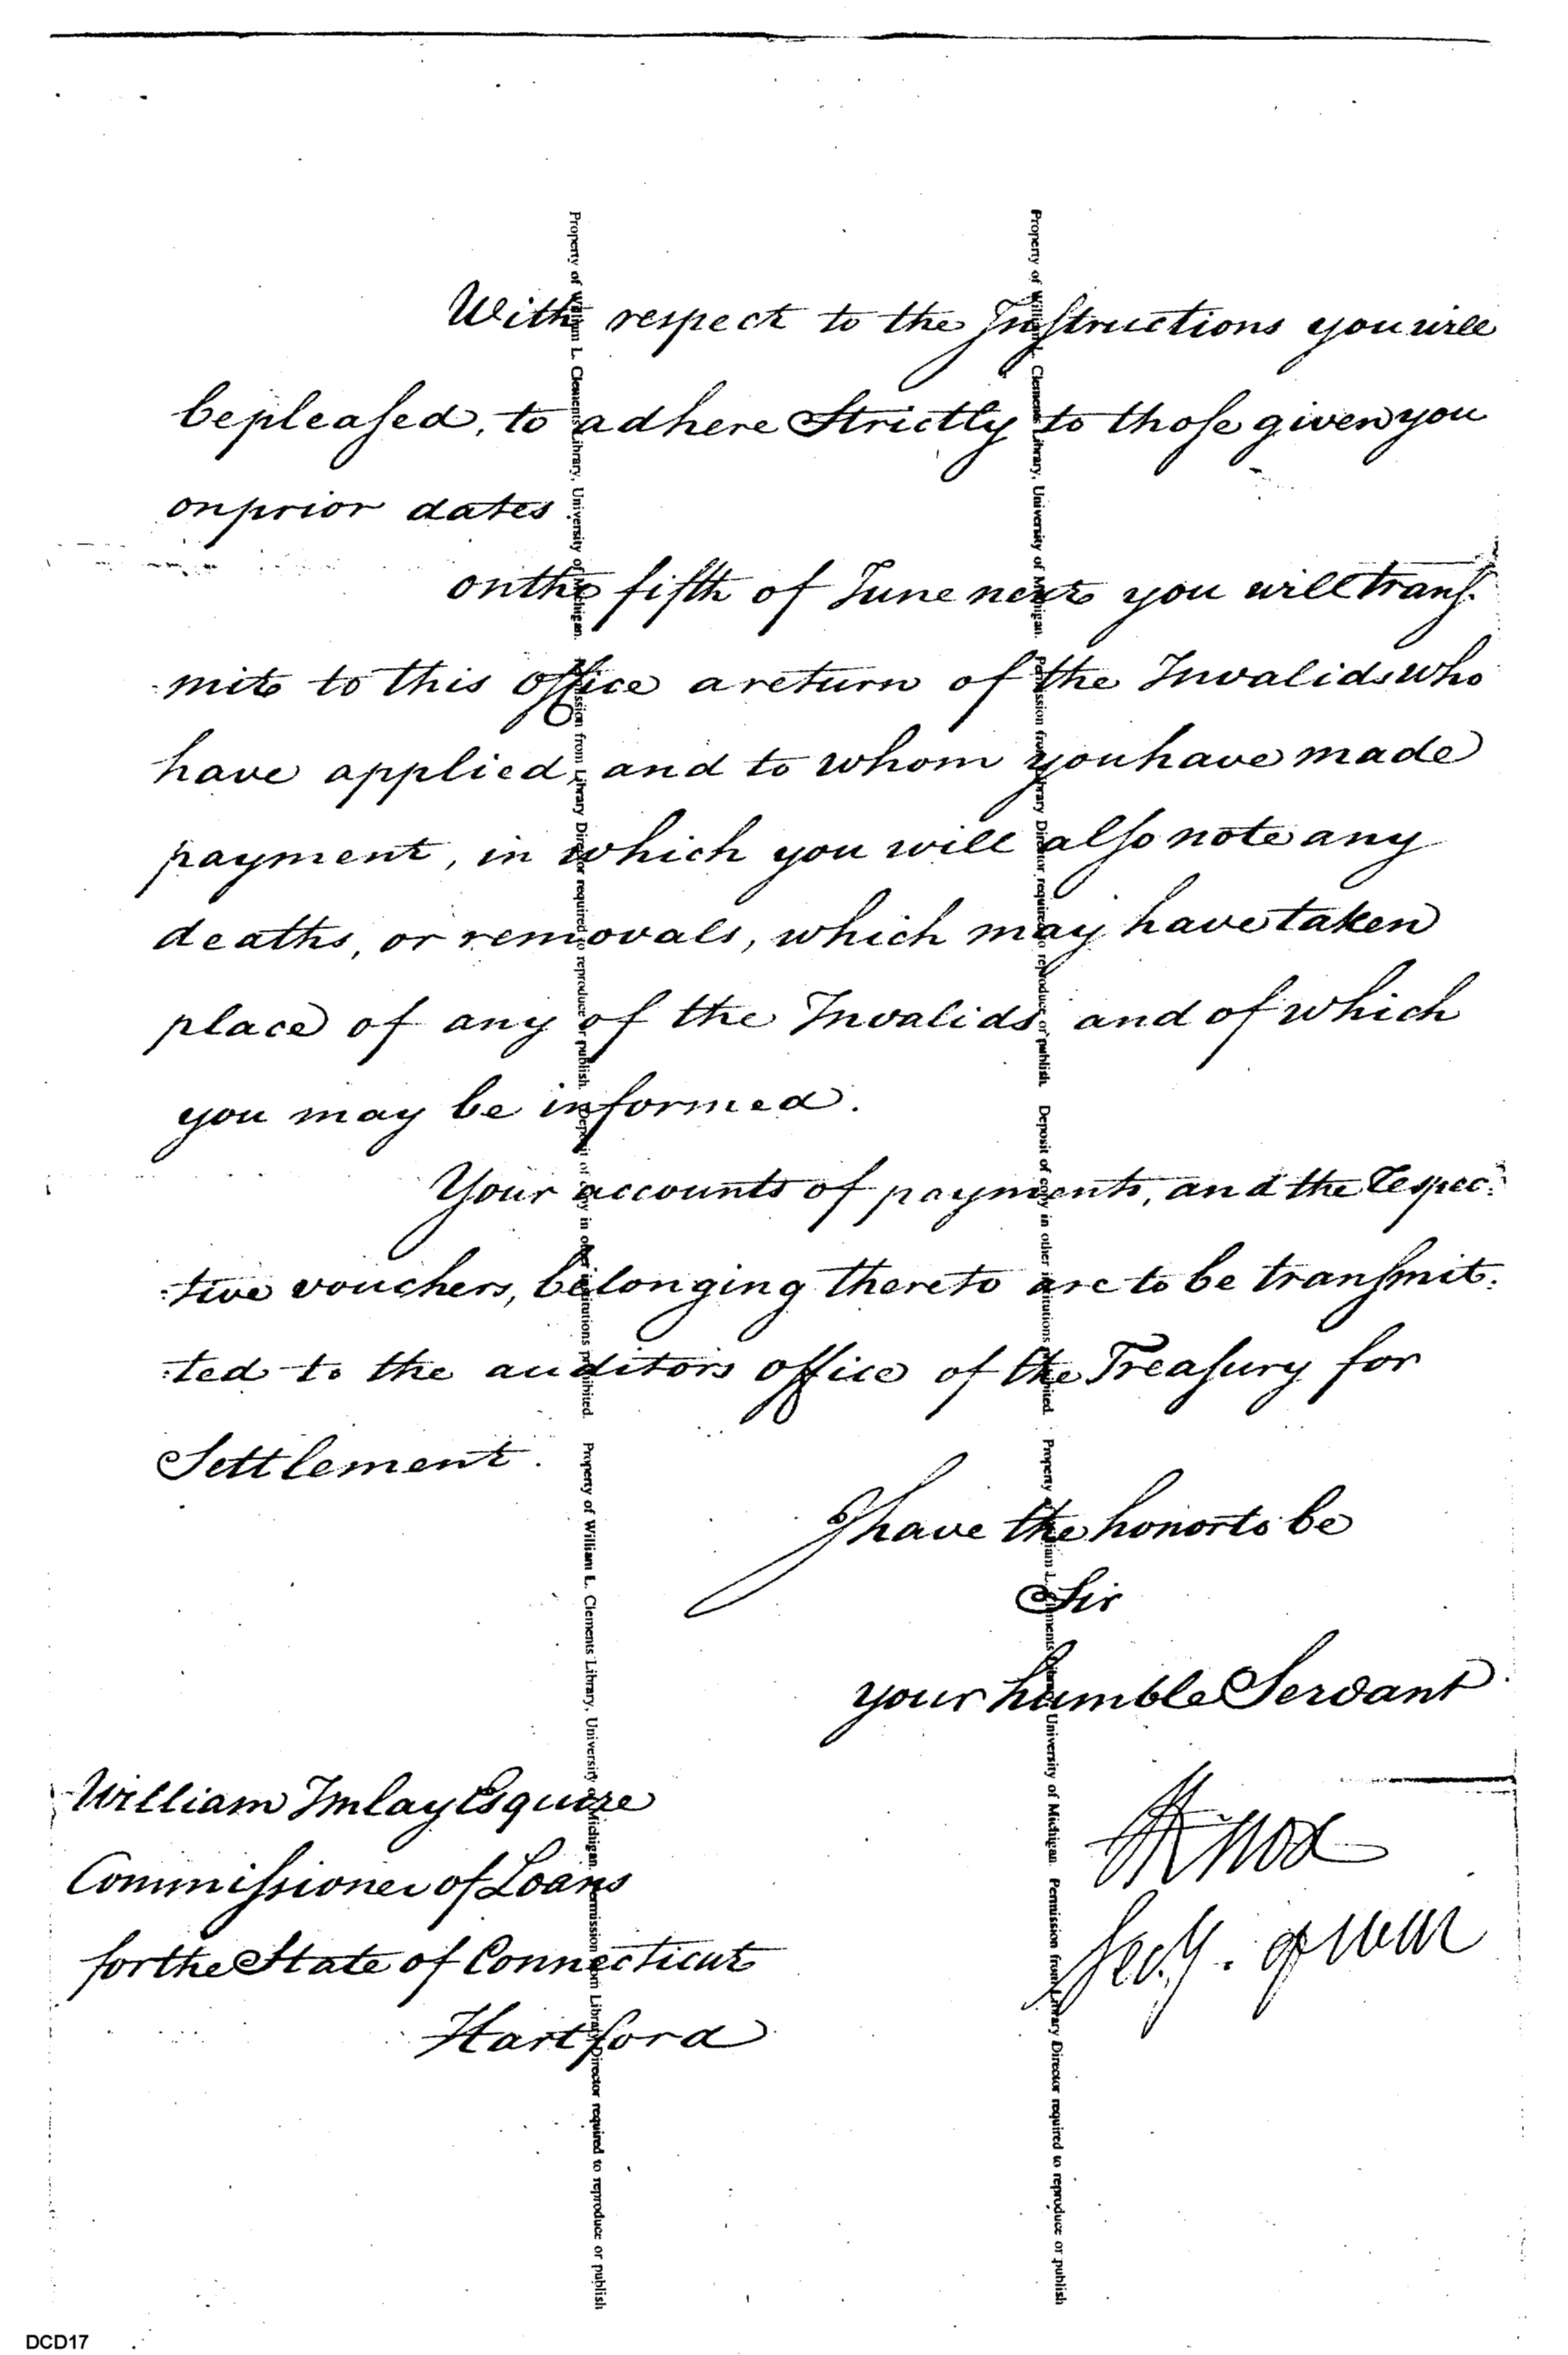 With respect to the Instructions you will
be pleased, to adhere Strictly to those given you
on prior dates
on the fifth of June next you will trans-
mit to this office a return of the Invalids who
have applied, and to whom you have made
payment, in which you will also note any
deaths, or removals, which may have taken
place of any of the Invalids, and of which
you may be informed.
Your accounts of payments, and the respec:
:tive vouchers, belonging thereto are to be transmit:
:ted to the auditors office of the Treasury for
Settlement.
I have the honor to be
Sir
your humble Servant
William Imlay Esquire
Commissioner of Loans
for the State of Connecticut
Hartford
HKnox
Secy. of War
Property of William L. Clements Library, University of Michigan. Permission from Library Director required to reproduce or publish. Deposit of copy in other institutions prohibited. Property of William L. Clements Library, University of Michigan. Permission from Library Director required to reproduce or publish
Property of William L. Clements Library, University of Michigan. Permission from Library Director required to reproduce or publish. Deposit of copy in other institutions prohibited. Property of William L. Clements Library, University of Michigan. Permission from Library Director required to reproduce or publish
DCD17